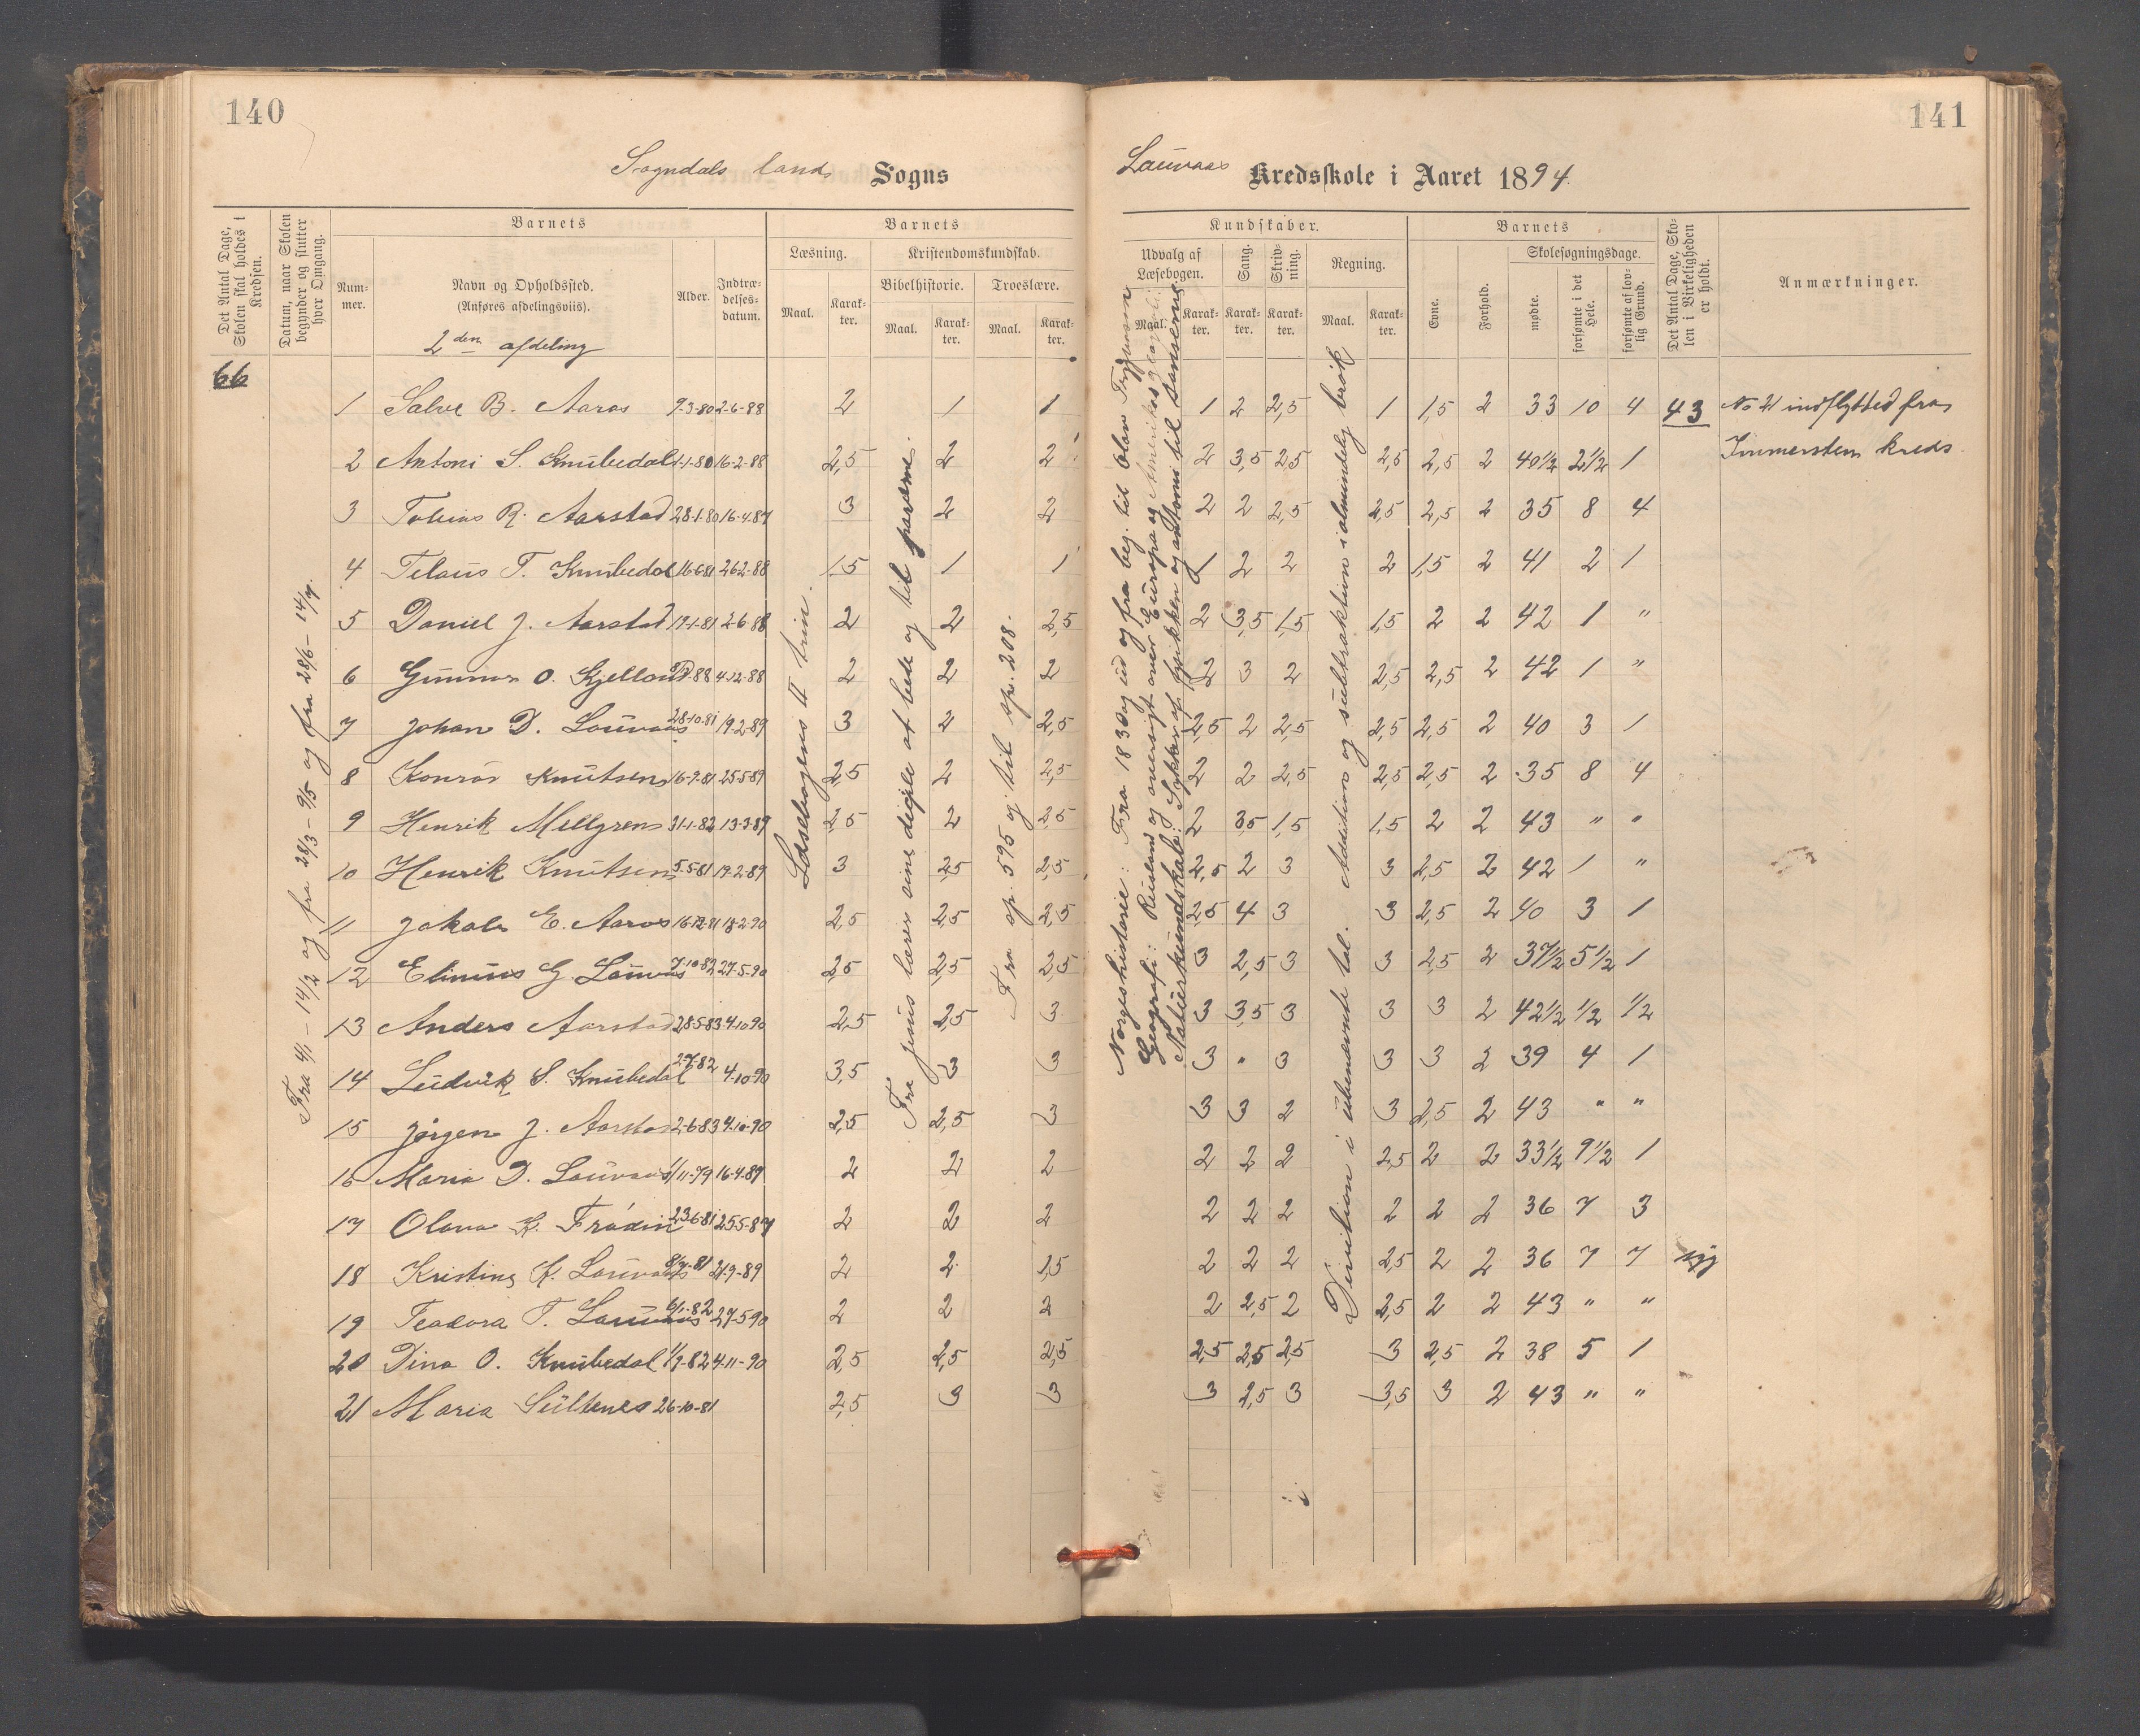 140
Sogndals lands Sogns
Det Antal Dage, Skolen skal holdes i Kredsen.
Datum, naar Skolen begynder og slutter hver Omgang.
Barnets
Nummer.
Navn og Opholdssted.
(Anføres afdelingsviis).
2den afdeling
Alder.
Indtrædelsesdatum.
Barnets
Læsning.
Maal.
Karakter.
Kristendomskundskab.
Bibelhistorie.
Maal.
Karakter.
Troeslære.
Maal.
Karakter.
66
Fra 4/1 - 14/2 og fra 28/3 - 9/5 og fra 28/6 - 14/9.
Læsebogens II trin.
Fra jesus lærer sine diciple at bede og til paverne.
Fra sp. 595 og til sp. 208.
1 Salve B. Aaros 9-3-80 2-6-88 2 1 1
2 Antoni S. Knubedal 1-1-80 16-2-88 2,5 2 2
3 Tobias R. Aarstad 28-1-80 16-4-87 3 2 2
4 Telaus T. Knubedal 16-6-81 26-2-88 1,5 1 1
5 Daniel J. Aarstad 19-1-81 2-6-88 2 2 2,5
6 Gunnar O. Kjelland 88 4-12-88 2 2 2
7 Johan D. Louvaas 28-10-81 19-2-89 3 2 2,5
8 Konrad Knutsen 16-9-81 25-5-89 2,5 2 2,5
9 Henrik Mellgren 31-1-82 13-3-89 2,5 2 2,5
10 Henrik Knutsen 5-5-81 19-2-89 3 2,5 2,5
11 Jakob E. Aaros 16-12-81 18-2-90 2,5 2,5 2,5
12 Elinius G. Louvas 7-10-82 27-5-90 2,5 2,5 2,5
13 Anders Aarstad 28-5-83 4-10-90 2,5 2,5 3
14 Ludvik S. Knubedal 2-7-82 4-10-90 3,5 3 3
15 Jørgen J. Aarstad 2-6-83 4-10-90 2,5 2,5 3
16 Maria D. Louvaas 1/11-79 16-4-87 2 2 2
17 Olava K. Frødin 23-6-81 25-5-87 2 2 2
18 Kristine K. Louvaas 8/7-81 21-9-89 2 2 1,5
19 Teodora T. Louvaas 6/1-82 27-5-90 2 2 2
20 Dina O. Knubedal 1/9-82 4-11-90 2,5 2,5 2,5
21 Maria Sültenes 26-10-81 2,5 3 3
141
Louvaas Kredsskole i Aaret 1894.
Kundskaber.
Udvalg af Læsebogen.
Maal.
Karakter.
Sang.
Karakter.
Skrivning.
Karakter.
Regning.
Maal.
Karakter.
Barnets
Evne.
Forhold.
Skolesøgningsdage.
mødte.
forsømte i det Hele.
forsømte af lovlig Grund.
Det Antal Dage, Skolen i Virkeligheden er holdt.
Anmærkninger.
Norgeshistorie: Fra 1830 og ud og fra beg. til Olav Trygvason
Geografi: Rusland og oversigt over Europa og Amerikas
Naturkundskab: Stykker af fysikken og antomi til sanserne.
Division i ubenævnte tal. Addition og subtraktion i almindelig brøk
1 2 2,5 1 1,5 2 33 10 4 43 No 21 indflytted fra
2 3,5 2,5 2,5 2,5 2 40 1/2 2 1/2 1 Immerstein kreds.
2 2 2,5 2,5 2,5 2 35 8 4
1 2 2 2 1,5 2 41 2 1
2 3,5 1,5 1,5 2 2 42 1 "
2 3 2 2,5 2,5 2 42 1 "
2,5 2 2,5 2,5 2,5 2 40 3 1
2 2 2,5 2,5 2,5 2 35 8 4
2 3,5 1,5 1,5 2 2 43 " "
2,5 2 3 3 2,5 2 42 1 "
2,5 4 3 3 2,5 2 40 3 1
3 2,5 3 3 2,5 2 37 1/2 5 1/2 1
3 3,5 3 3 3 2 42 1/2 1/2 1/2
3 " 3 3 3 2 39 4 1
3 3 2 3 2,5 2 43 " "
2 2 2 2,5 2 2 33 1/2 9 1/2 1
2 2 2 2 2 2 36 7 3
2 2 2 2,5 2 2 36 7 7 syg
2 2,5 2 2,5 2 2 43 " "
2,5 2,5 2,5 3 2,5 2 38 5 1
3 2,5 3 3,5 3 2 43 " "